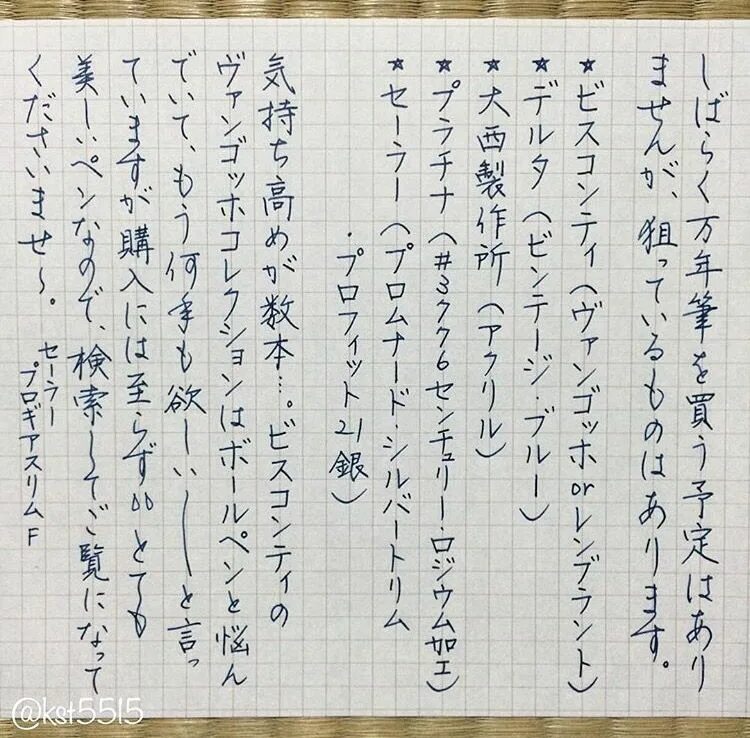 しばらく万年筆を買う予定はあり
ませんが、狙っているものはあります。
☆ビスコンティ(ヴァンゴッホorレンブラント)
☆デルタ(ビンテージ・ブルー)
☆大西製作所(アクリル)
☆プラチナ(#3776センチュリー・ロジウム加工)
☆セーラー(プロムナード・シルバートリム
・プロフィット21銀)
気持ち高めが数本…。ビスコンティの
ヴァンゴッホコレクションはボールペンと悩ん
でいて、もう何年も欲しい〜と言っ
ていますが購入には至らず。とても
美しいペンなので、検索してご覧になって
くださいませ〜。
セーラー
プロギアスリムF
@kst5515